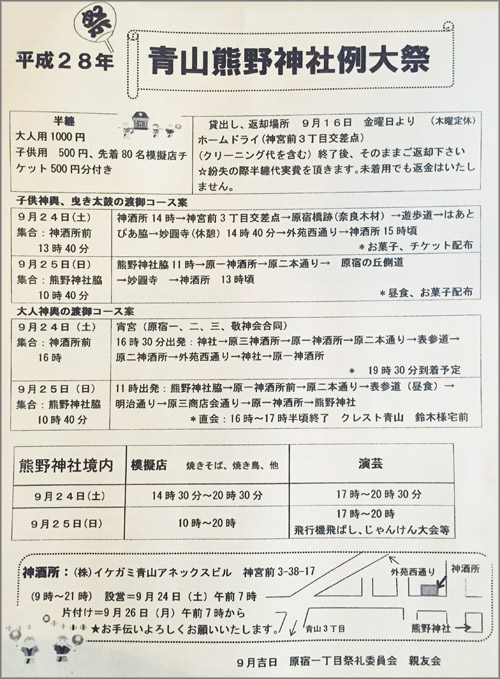 祭
平成２８年
青山熊野神社例大祭
半纏
大人用1000円
子供用　500円、先着80名模擬店チ
ケット500円分付き
貸出し、返却場所　９月１６日　金曜日より　（木曜定休）
ホームドライ(神宮前３丁目交差点)
(クリーニング代を含む）終了後、そのままご返却下さい
☆紛失の際半纏代実費を頂きます。未着用でも返金はいたし
ません。
子供神輿、曳き太鼓の渡御コース案
９月２４日(土）
集合：神酒所前
13時40分
神酒所14時→神宮前３丁目交差点→原宿橋跡(奈良木材）→遊歩道→はあと
ぴあ脇→妙圓寺(休憩）14時40分→外苑西通り→神酒所15時頃
＊お菓子、チケット配布
９月２５日(日）
集合：熊野神社脇
10時40分
熊野神社脇11時→原一神酒所→原二本通り→　原宿の丘側道
→妙圓寺　→神酒所　13時頃
＊昼食、お菓子配布
大人神輿の渡御コース案
９月２４日（土）
集合：神酒所前
16時
宵宮（原宿一、二、三、敬神会合同）
16時30分出発：神社→原三神酒所→原一神酒所→原二本通り→表参道→
原二神酒所→外苑西通り→神社→原一神酒所
＊　19時30分到着予定
９月２５日（日）
集合：熊野神社脇
10時40分
11時出発：熊野神社脇→原一神酒所前→原二本通り→表参道（昼食）→
明治通り→原三商店会通り→原一神酒所→熊野神社
＊直会：16時～17時半頃終了　クレスト青山　鈴木様宅前
熊野神社境内　模擬店　焼きそば、焼き鳥、他　演芸
９月２４日(土)　14時30分～20時30分　17時～20時30分
９月２５日(日)　10時～20時　17時～20時
飛行機飛ばし、じゃんけん大会等
神酒所：(株)イケガミ青山アネックスビル　神宮前3-38-17
（9時～21時）　設営＝９月２４日（土）午前７時
片付け＝９月２６日（月）午前７時から
★お手伝いよろしくお願いいたします。
外苑西通り
神酒所
青山３丁目
熊野神社→
９月吉日　原宿一丁目祭礼委員会　親友会